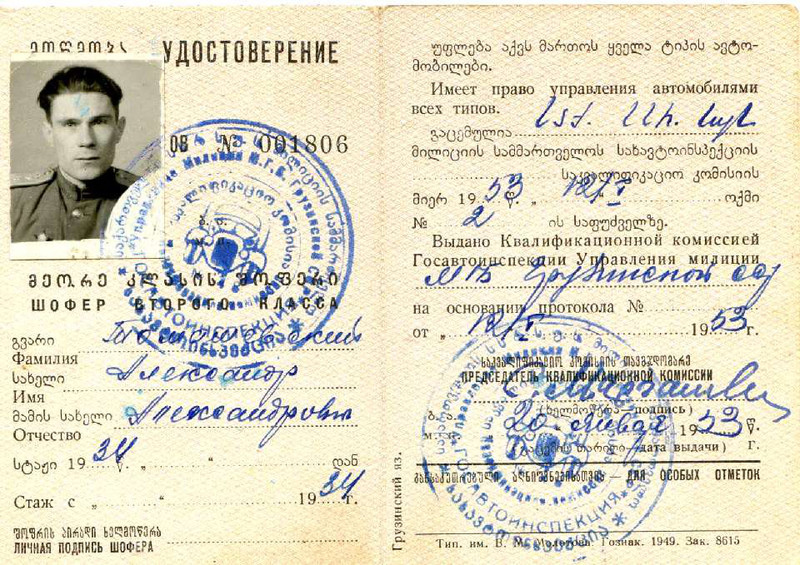 УДОСТОВЕРЕНИЕ
№ 001806
მეორე კლასის შოფერი
ШОФЕР ВТОРОГО КЛАССА
გვარი
Фамилия
სახელი Александр
Имя
მამის სახელი Александрович
Отчество
სტაჟი 1934 წ. „ “ დან
Стаж с „ “ 1934 г.
შოფრის პირადი ხელმოწერა
ЛИЧНАЯ ПОДПИСЬ ШОФЕРА
უფლება აქვს მართოს ყველა ტიპის ავტო-
მობილები.
Имеет право управления автомобилями
всех типов.
გაცემულია
მილიციის სამმართველოს სახავტოინსპექციის
საკვალიფიკაციო კომისიის
მიერ 1953 წ. „ 12/I ოქმი
№ 2 ის საფუძველზე.
Выдано Квалификационной комиссией
Госавтоинспекции Управления милиции
МГБ Грузинской ССР
на основании протокола №
от „12/I 1953 г.
საკვალიფიკაციო კომისიის თავმჯდომარე
ПРЕДСЕДАТЕЛЬ КВАЛИФИКАЦИОННОЙ КОМИССИИ
(ხელმოწერა—подпись)
20 января 1953 წ.
(გაცემის თარიღი—дата выдачи) г.
განსაკუთრებული აღნიშვნებისათვის — ДЛЯ ОСОБЫХ ОТМЕТОК
Грузинский яз.
Тип. им. В. М. Молотова. Гознак. 1949. Зак. 8615